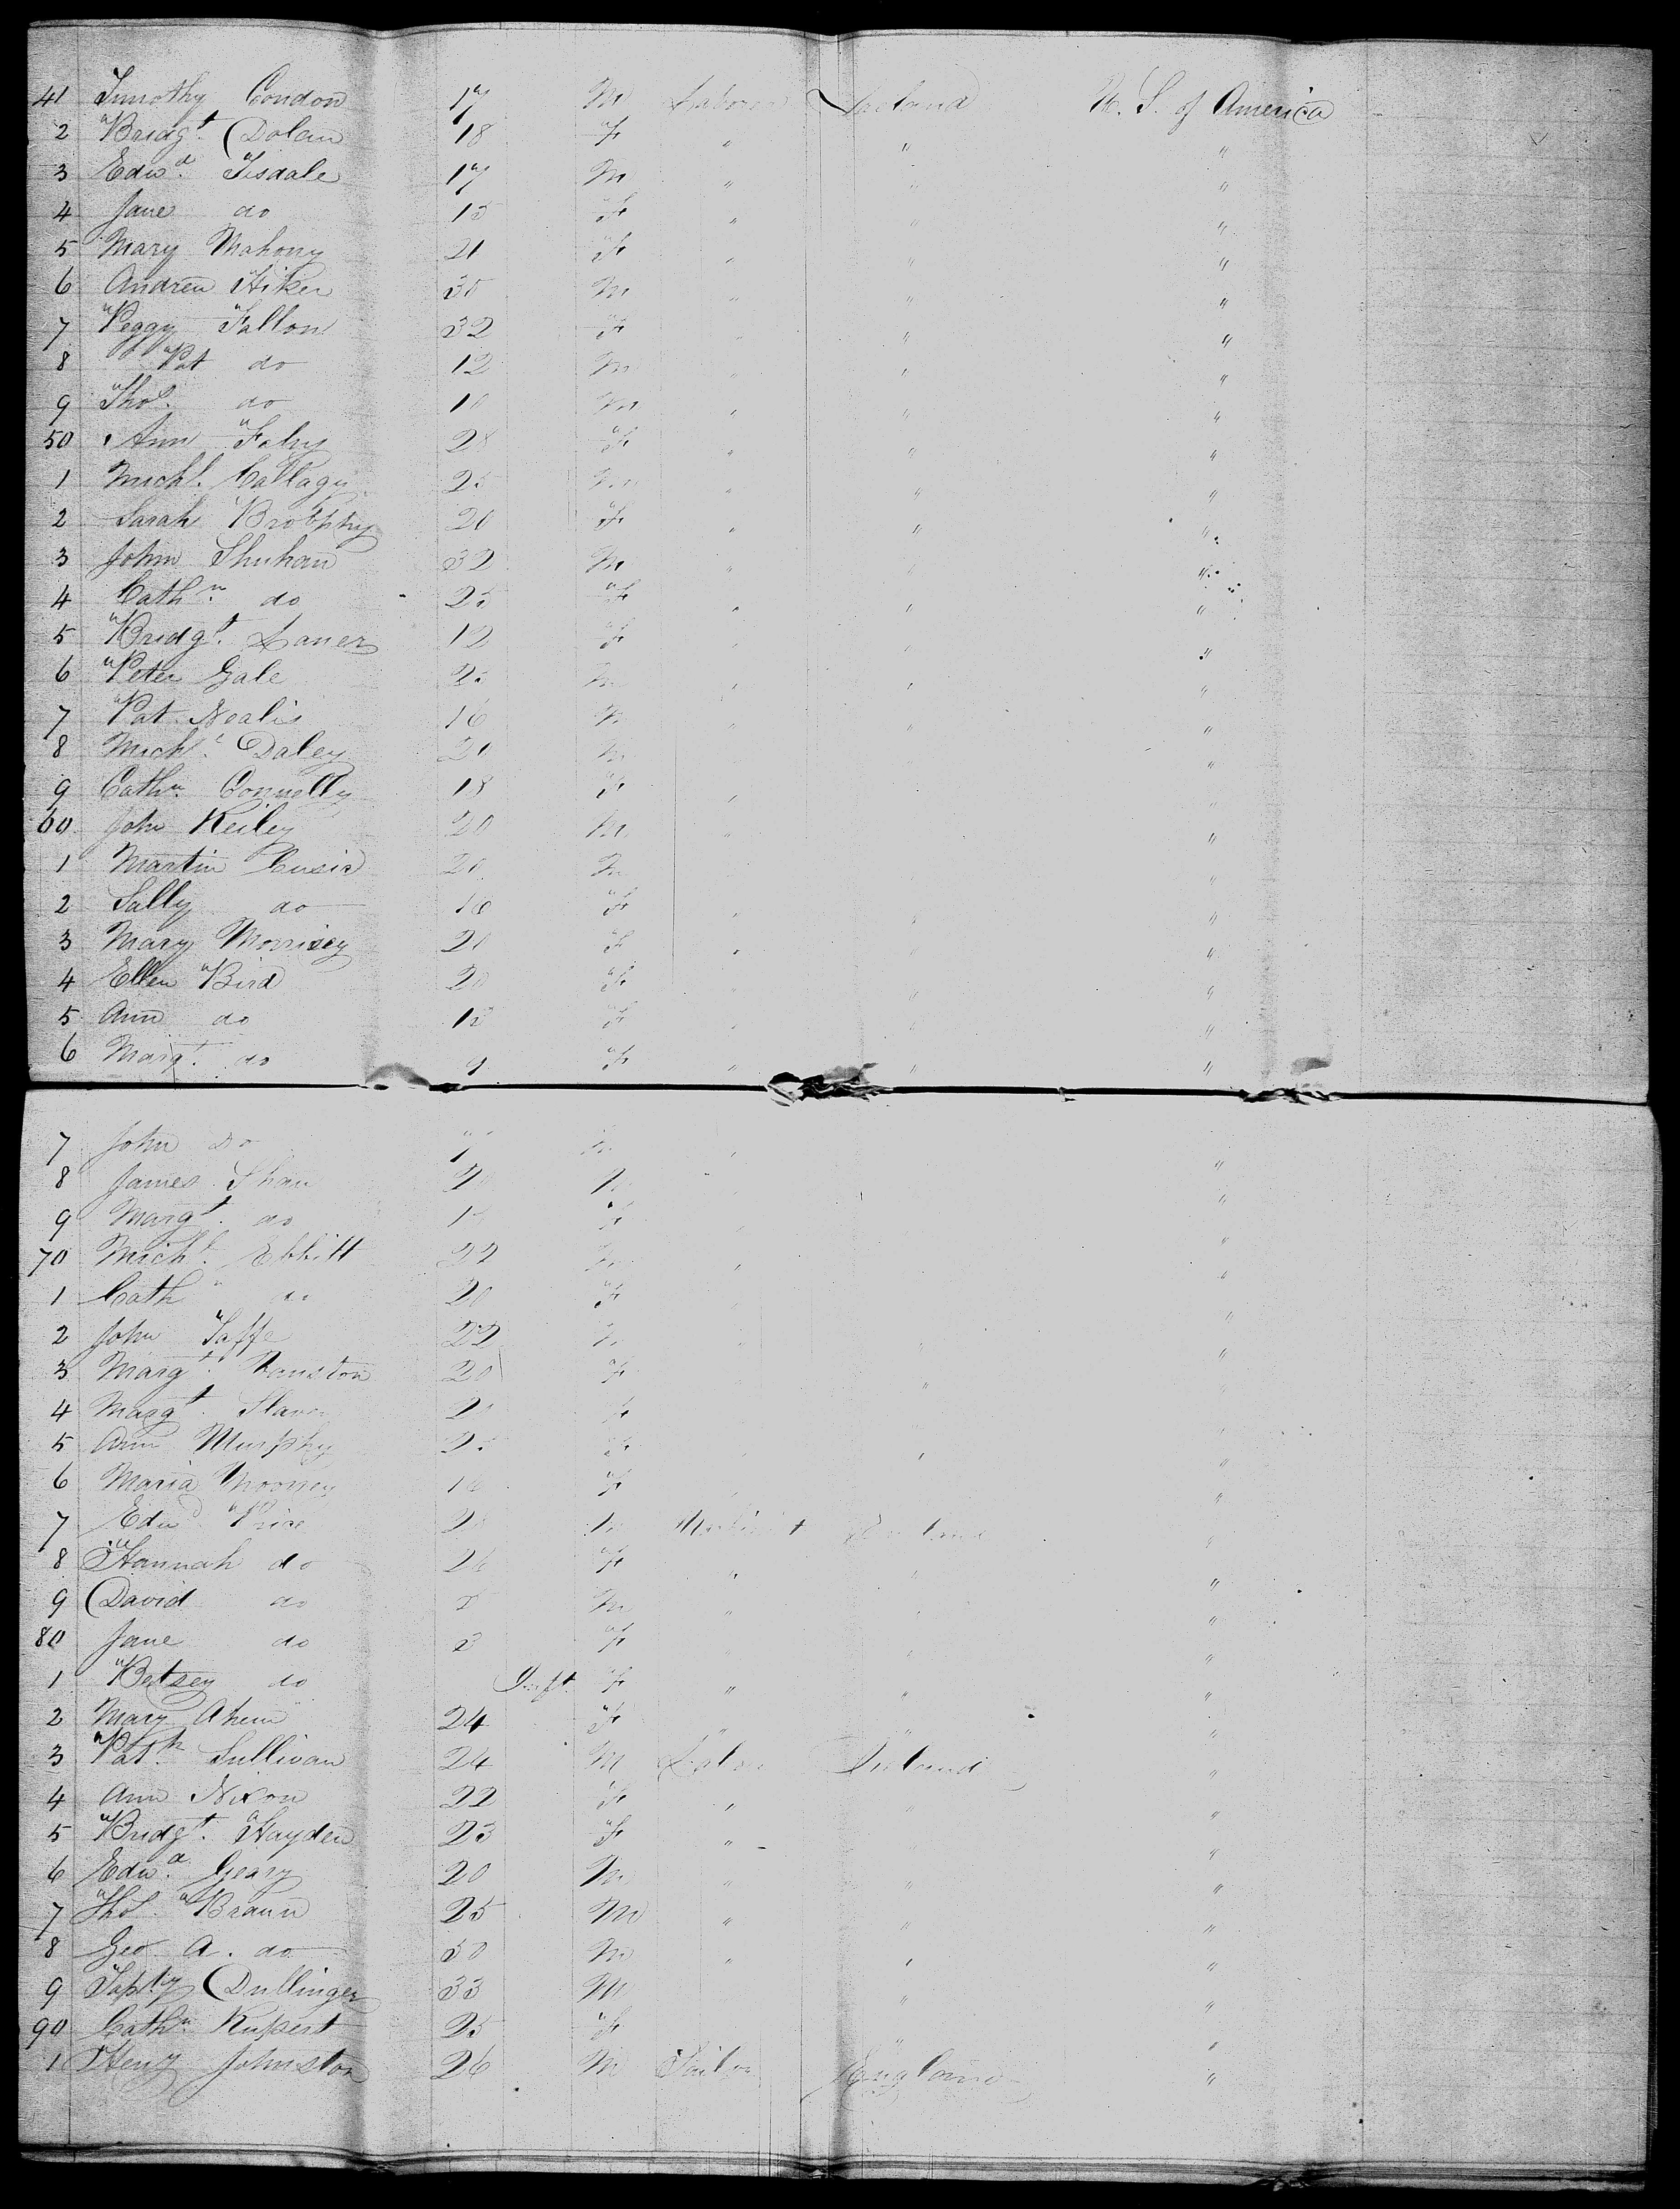 41 Timothy Condon 17 M Laborer Ireland U. S. of America
2 Bridgt. Dolan 18 F " " "
3 Edwd. Tisdale 17 M " " "
4 Jane do 15 F " " "
5 Mary Mahony 21 F " " "
6 Andrew 35 M " " "
7 Peggy Fallon 32 F " " "
8 Pat do 12 M " " "
9 Thos. do 10 M " " "
50 Ann Fahy 28 F " " "
1 Michl. 25 M " " "
2 Sarah Brophy 20 F " " "
3 John Shuhan 32 M " " "
4 Cathn. do 25 F " " "
5 Bridgt. 12 F " " "
6 Peter Gale M " " "
7 Pat Nealis 16 M " " "
8 Michl. Daley M "
9 Cathn. Connelly 18 F " "
60 John Keiley 20 M " "
1 Martin Cusic 20 M "
2 Sally do 16 F " " "
3 Mary Morrisey 20 F " " "
4 Ellen Bird 20 F " "
5 Ann do F " " "
6 Margt. do 9 F " " "
7 John Do 7 M " "
8 James M "
9 Margt. do F "
70 Michl. Ebbitt 22 M " "
1 Cathn do 20 F "
2 John Taffe 22 M " "
3 Margt. 20 F "
4 Margt. F
5 Ann Murphy F " "
6 Maria Mooney 16 F "
7 Edwd M "
8 Hannah do 26 F " " "
9 David do M " " "
80 Jane do 3 F " " "
1 Betsey do Inft. F " " "
2 Mary Ahern 24 F " " "
3 Patk. Sullivan 24 M Labor Ireland "
4 Ann Nixon 22 F " " "
5 Bridgt. Hayden 23 F " "
6 Edwd. Geary 20 M " " "
7 Thos. Braun 25 M " " "
8 Geo. A. do 30 M " " "
9 Dullinger 33 M " "
90 Cathn. Rupert 25 F " "
1 Henry Johnston 26 M England "